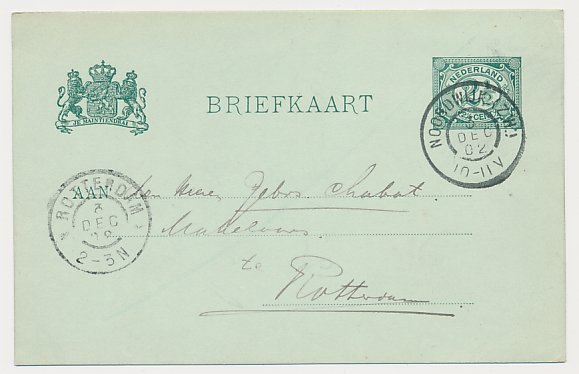 NEDERLAND
2½ CENT
JE MAINTIENDRAI
BRIEFKAART
DEC
02
10-11V
ROTTERDAM
3
DEC
02
2-3N
AAN den Heeren Gebrs Chabot
Makelaars
te
Rotterdam